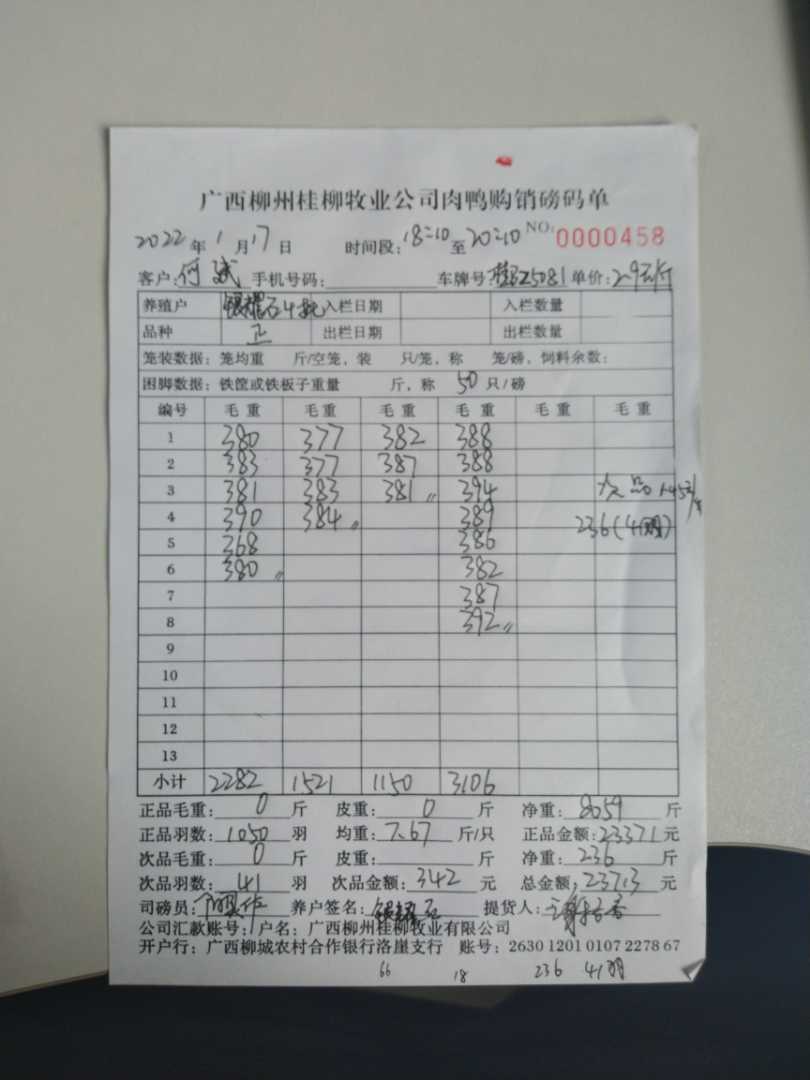 广西柳州桂柳牧业公司肉鸭购销磅码单
2022年1月17日 时间段:18=10至20=10 NO:0000458
客户:何斌 手机号码: 车牌号:桂BZ5081 单价:2.9元/斤
养殖户 银耀石 入栏日期 入栏数量
品种 正 出栏日期 出栏数量
笼装数据:笼均重 斤/空笼,装 只/笼,称 笼/磅,饲料余数:
困脚数据:铁筐或铁板子重量 斤,称 50 只/磅
编号 毛重 毛重 毛重 毛重 毛重 毛重
1 380 377 382 388
2 383 377 387 388
3 381 383 381 394 次品 1.45元/斤
4 390 384 389 236(41羽)
5 368 386
6 380 382
7 387
8 392
9
10
11
12
13
小计 2282 1521 1150 3106
正品毛重:0斤 皮重:0斤 净重:8059斤
正品羽数:1050羽 均重:7.67斤/只 正品金额:23371元
次品毛重:0斤 皮重: 斤 净重:236斤
次品羽数:41羽 次品金额:342元 总金额:23713元
司磅员: 养户签名:银耀石 提货人:
公司汇款账号:户名:广西柳州桂柳牧业有限公司
开户行:广西柳城农村合作银行洛崖支行 账号:2630 1201 0107 2278 67
66 18 236 41羽